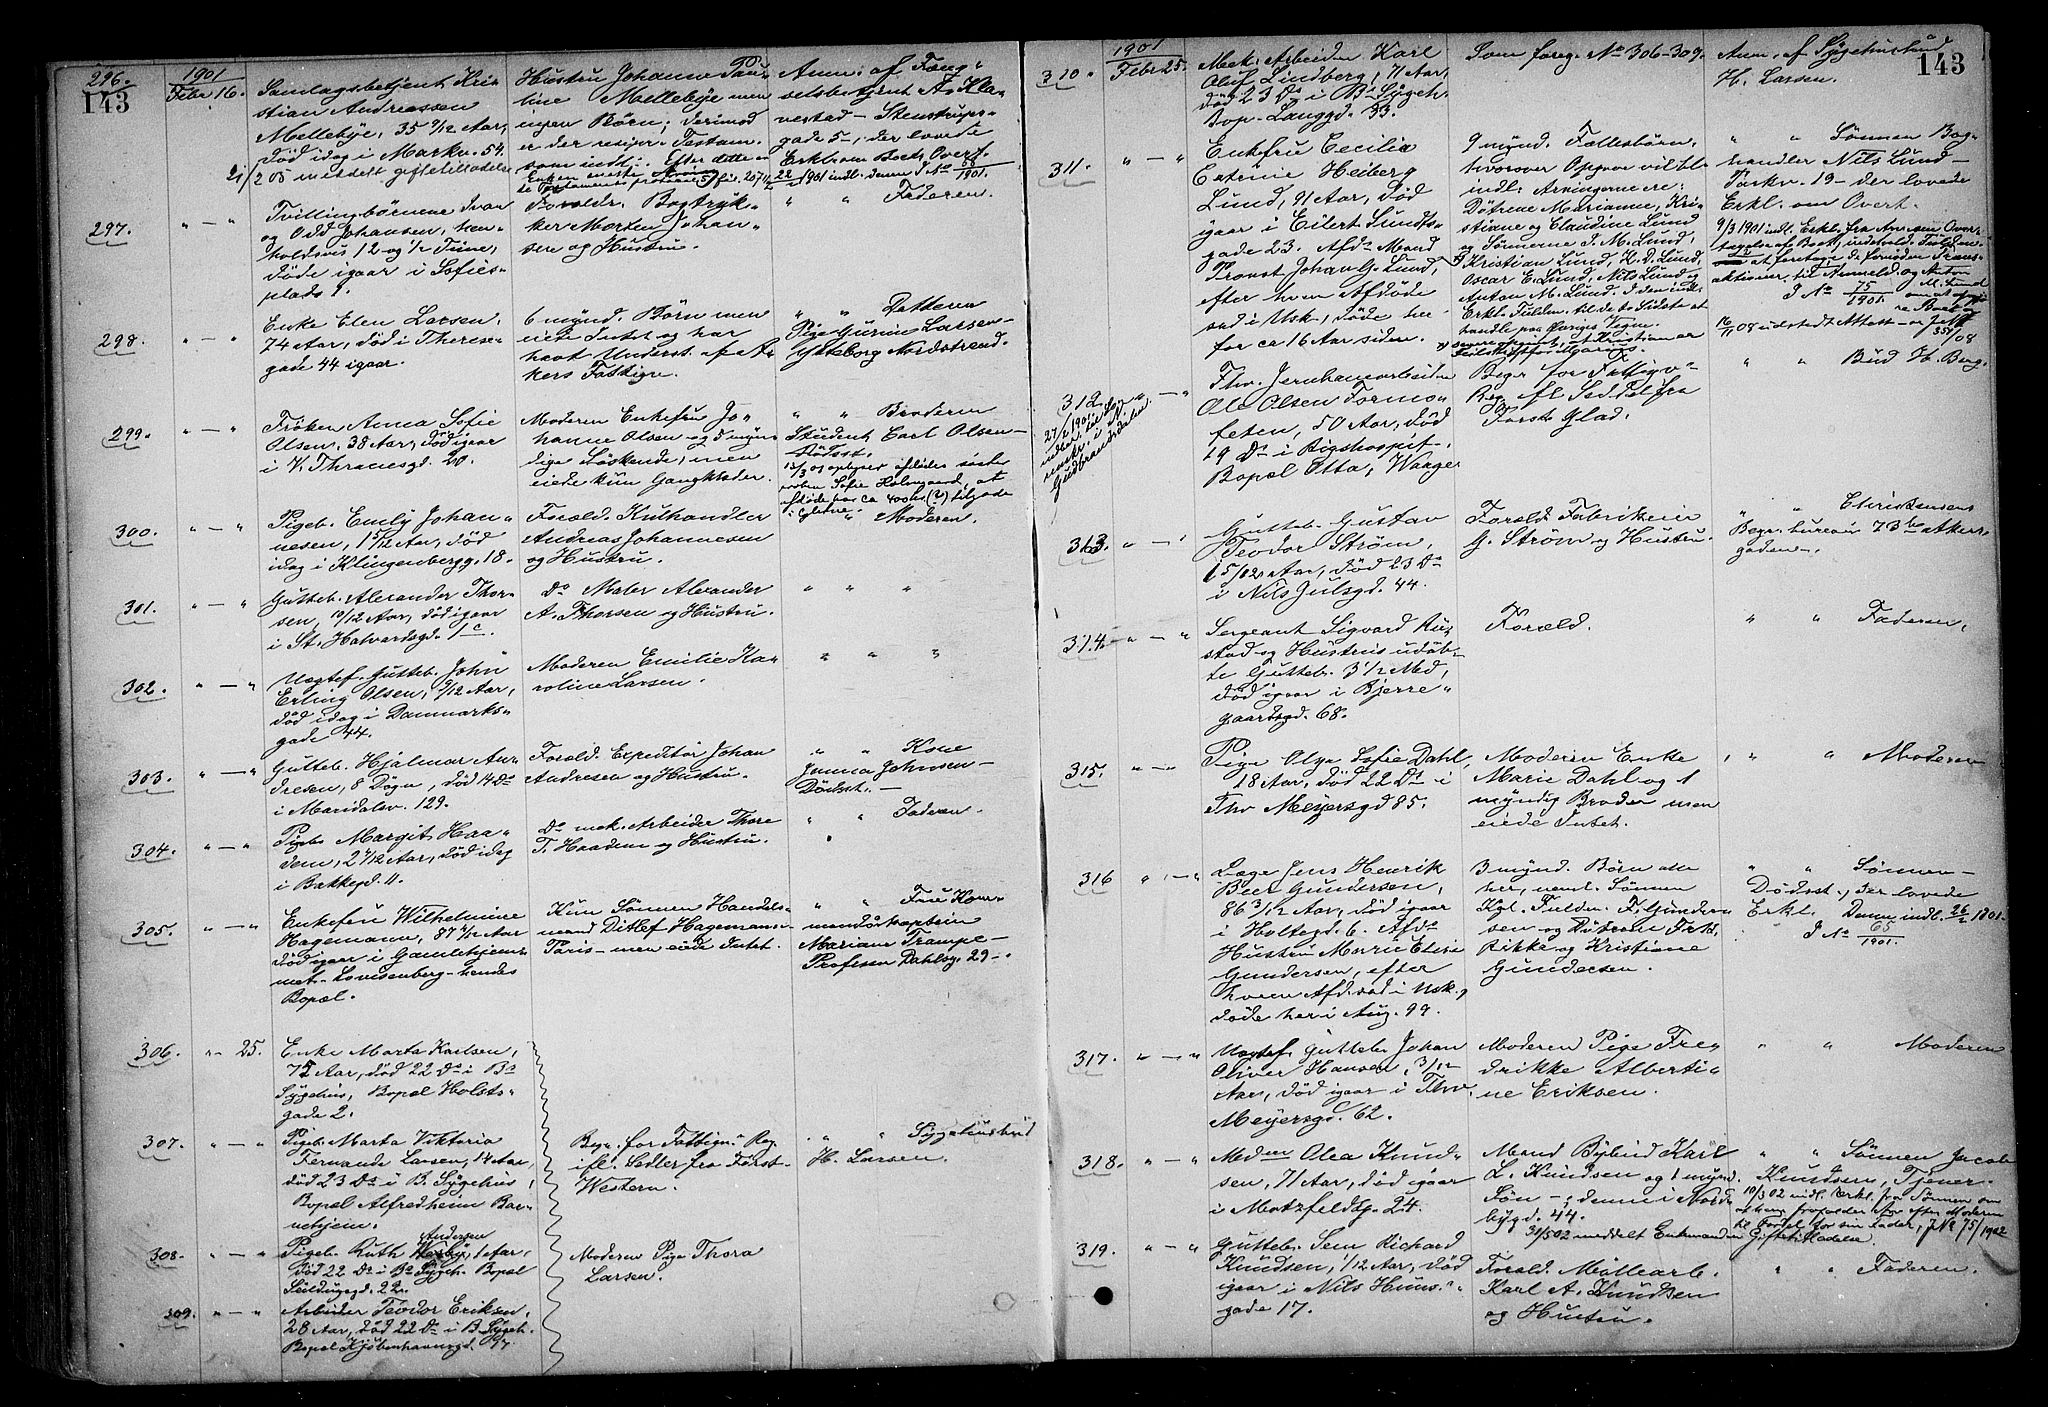 296.
143
1901
Febr 16.
Samlagsbetjent Kri-
stian Andreassen
Mellebye, 35 9/12 Aar,
død idag i Markv. 54.
meddelt giftetilladelse
Hustru Johanne Pau-
line Mellebye men
ingen Børn; derimod
er der recipr. Testam.
som indl.. Efter dette er
Enken eneste
Anm: af Fæng-
selsbetjent A. Kla-
vestad - Stenstrups-
gade 5-, der lovede
Erkl. om Boets Overt.
1901 indl. denne J No 1901.
297.
" - "
Tvillingbørnene Ivar
og Odd Johansen, hen-
holdsvis 12 og 1/2 Time,
døde igaar i Sofies-
plads 1.
Foreldr. Bogtryk-
ker Morten Johan-
sen og Hustru.
" " Faderen.
298.
" - "
Enke Elen Larsen,
74 Aar, død i Therese-
gade 44 igaar.
6 mynd. Børn men
eiede Intet og har
havt Underst. af A-
kers Fattigv.
" " Datteren
Pige Gurine Larsen -
Ljabro Nordstrand.
299.
" - "
Frøken Anna Sofie
Olsen, 38 Aar, død igaar
i V. Thranesgd. 20.
Moderen Enkefru Jo-
hanne Olsen og myn-
dige Søskende, men
eiede kun Gangklæder.
" " Broderen
Student Carl Olsen -
Dødsst.
oplyser afdødes søster
Sofie Holmgaard, at
afdøde har ca 400 kr (?) tilgode
300.
" - "
Pigeb. Emily Johan-
nesen, 1 5/12 Aar, død
idag i Klingenbergg. 18.
Foræld. Kulhandler
Andreas Johannesen
og Hustru.
" Moderen.
301.
" - "
Gutteb. Alexander Thor-
sen, 10/12 Aar, død igaar
i St. Halvardsgd. 1c.
Do Maler Alexander
A. Thorsen og Hustru.
" " "
302.
" - "
Uægtef. Gutteb. John
Erling Olsen, 9/12 Aar,
død idag i Danmarks-
gade 44.
Moderen Emilie Ka-
roline Larsen.
" " "
303.
" - "
Gutteb. Hjalmar An-
dresen, 8 Døgn, død 14 Ds
i Maridalsv. 129.
Foræld. Expeditør Johan
Andresen og Hustru.
" " Kone
Jensine Johnsen -
Dødsst. -
304.
" - "
Pigeb. Margit Haa-
dem, 2 4/12 Aar, død idag
i Bakkegd. 11.
Do mek. Arbeider Thore
T. Haadem og Hustru.
" " Faderen.
305.
" - "
Enkefru Wilhelmine
Hagemann, 87 4/12 Aar
død igaar i Gamlehjem-
met - Lovisenberg - hendes
Bopæl.
Kun Sønnen Handels-
mand Ditlef Hagemann -
Paris - men eiede Intet.
" " Fru Kom-
mandørkaptein
Mariane Trampe -
Professor Dahlsg. 29 -.
306.
" - 25.
Enke Marta Karlsen,
72 Aar, død 22 Ds i Bs
Sygehus, Bopæl Holsts-
gade 2.
307.
" - "
Pigeb. Marta Viktoria
Fernanda Larsen, 14 Aar,
død 23 Ds i B. Sygehus,
Bopæl Alfredheim Bar-
nehjem.
Begr. for Fattigv. Reg.
ifl. Sedler fra Forst.
Western.
" " Sygehusbud
H. Larsen.
308.
" - "
Andersen
Pigeb. Ruth Werby, 1 Aar,
død 22 Ds i Bs Sygeh. Bopæl
Seildugsgd. 22.
Moderen Pige Thora
Larsen.
309.
" - "
Arbeider Teodor Eriksen,
28 Aar, død 22 Ds i B. Sygeh.
Bopæl Kjøbenhavnsgd.
143
1901
310.
Febr. 25.
Mek. Arbeider Karl
Oluf Lindberg, 71 Aar,
død 23 Ds i Bs Sygeh.
Bop. Langgd. 33.
Som foreg. No 306-309.
Anm. af Sygehusbud
H. Larsen.
311.
" - "
Enkefru Cecilia
Catrine Heiberg
Lund, 91 Aar, død
igaar i Eilert Sundts-
gade 23. Afd. Mand
Provst Johan G. Lund,
efter hvem Afdøde
sad i Usk., døde her
for ca 16 Aar siden.
9 mynd. Fællesbørn,
hvorover Opgave vil bli
indl. Arvingerne ere:
Døtrene Marianne, Kri-
stiane og Claudine Lund
og Sønnerne J. M. Lund,
Kristian Lund, H. D. Lund,
Oscar E. Lund, Nils Lund og
Anton M. Lund. I den indl.
Erkl. Fuldm. til de to Sidste at
handle paa Øvriges Vegne.
" " Sønnen Bog-
handler Nils Lund -
Parkv. 19 - der lovede
Erkl. om Overt.
9/3 1901 indl. Erkl. fra Arvingerne Over-
tagelse af Boet, indehold. Fuldm.
at foretage de fornødne Trans-
aktioner til Anmeld. og Anton
M. Lund
J No 75/1901.
08 udstedt Attest - J No 351/08
312.
" - "
27/2 1901
Gudbrandsdalen
Fhv. Jernbanearbeider
Ole Olsen Formo-
feten, 50 Aar, død
19 Ds i Rigshospit.
Bopæl Otta, Waage
Begr. for Fattigv.
Reg. ifl. Seddel fra
Forst. Glad.
" " Bud H. Berg.
313.
" - "
Gutteb. Gustav
Teodor Strøm,
1 5/12 Aar, død 23 Ds
i Nils Juelsgd. 44.
Foræld. Fabrikeier
G. Strøm og Hustru.
" " Christensens
Begr. bureau 73b Akers-
gaden -.
314.
" - "
Sergeant Sigvard Ru-
stad og Hustrus udøb-
te Gutteb. 3 1/2 Md,
død igaar i Bjerre-
gaardsgd. 68.
Foræld.
" " Faderen.
315.
" - "
Pige Olga Sofie Dahl,
18 Aar, død 22 Ds i
Thv Meyersgd 85.
Moderen Enke
Marie Dahl og 1
myndig Broder men
eiede Intet.
" " Moderen
316
" - "
Læge Jens Henrik
Beer Gundersen,
86 3/12 Aar, død igaar
i Holtegd. 6. Afd.
Hustru Marie Elise
Gundersen, efter
hvem Afd. sad i Usk.,
døde her i Aug. 99.
3 mynd. Børn alle
her, neml. Sønnen
Kgl. Fuldm. F. Gunder-
sen og Døtrene Fred-
rikke og Kristiane
Gundersen.
" " Sønnen -
Dødsst., der lovede
Erkl. Denne indl. 26/2 1901.
J No 65/1901.
317.
" - "
Uægtef. Gutteb. Johan
Oliver Hansen, 3/12
Aar, død igaar i Thv.
Meyersgd. 62.
Moderen Pige Fre-
drikke Alberti-
ne Eriksen.
" " Moderen
318.
" - "
Madmen Olea Knud-
sen, 71 Aar, død igaar
i Motzfeldtsg. 24.
Mand Bybud Karl
L. Knudsen og 1 mynd.
Søn -, denne i Nord-
bygd. 44.
" " Sønnen Jacob
Knudsen, Tjener
10/3 02 indl. Erkl. fra Sønnen om
at han frafalder Arv efter Moderen
til Fordel for sin Fader, J No 75/1902
31/5 02 meddelt Enkemanden Giftetilladelse.
319.
" - "
Gutteb. Sem Richard
Knudsen, 1/12 Aar, død
igaar i Nils Huus-
gade 17.
Foræld. Møllearb.
Karl A. Knudsen
og Hustru.
" " Faderen.